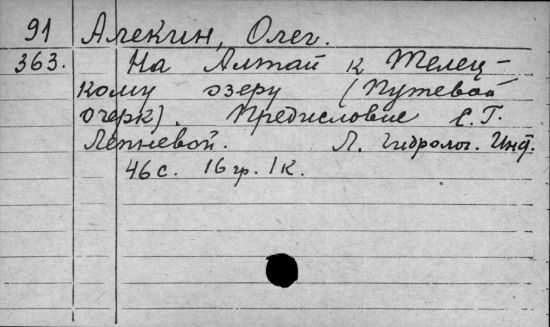 91 Алекин, Олег.
363. На Алтай к Телец-
кому озеру (Путевой
очерк). Предисловие С.Г.
Лепневой. Л. Гидролог. Инст.
46 с. 16 гр. 1 к.